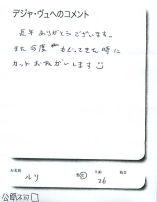 デジャ・ヴュへのコメント
長年ありがとうございます。
また今度 もどってきた時に
カットおねがいします
お名前 ルリ
26
公開不可